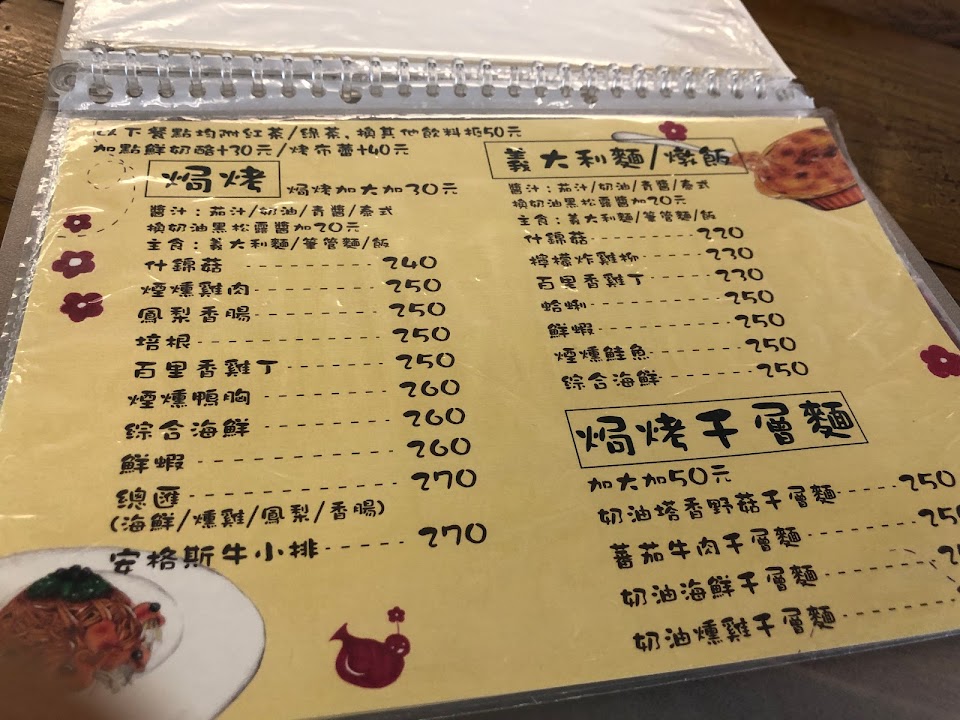 以下餐點均附紅茶/綠茶,換其他飲料抵50元
加點鮮奶酪+30元/烤布蕾+40元
焗烤 焗烤加大加30元
醬汁:茄汁/奶油/青醬/泰式
換奶油黑松露醬加20元
主食:義大利麵/筆管麵/飯
什錦菇 240
煙燻雞肉 250
鳳梨香腸 250
培根 250
百里香雞丁 250
煙燻鴨胸 260
綜合海鮮 260
鮮蝦 260
總匯 270
(海鮮/燻雞/鳳梨/香腸)
安格斯牛小排 270
義大利麵/燉飯
醬汁:茄汁/奶油/青醬/泰式
換奶油黑松露醬加20元
主食:義大利麵/筆管麵/飯
什錦菇 220
檸檬炸雞柳 230
百里香雞丁 230
蛤蜊 250
鮮蝦 250
煙燻鮭魚 250
綜合海鮮 250
焗烤千層麵
加大加50元
奶油塔香野菇千層麵 250
蕃茄牛肉千層麵 250
奶油海鮮千層麵
奶油燻雞千層麵